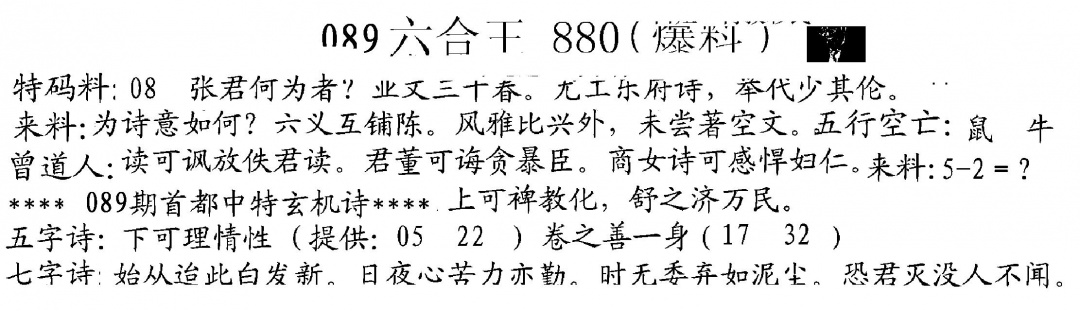 089六合王 880(爆料)
特码料: 08 张君何为者? 业文三十春。尤工乐府诗, 举代少其伦。
来料:为诗意如何? 六义互铺陈。风雅比兴外, 未尝著空文。五行空亡: 鼠 牛
曾道人:读可讽放佚君读。君董可诲贪暴臣。商女诗可感悍妇仁。来料:5-2=?
**** 089期首都中特玄机诗**** 上可裨教化, 舒之济万民。
五字诗: 下可理情性 (提供: 05 22 ) 卷之善一身 (17 32 )
七字诗: 始从迨此白发新。日夜心苦力亦勤。时无委弃如泥尘。恐君灭没人不闻。